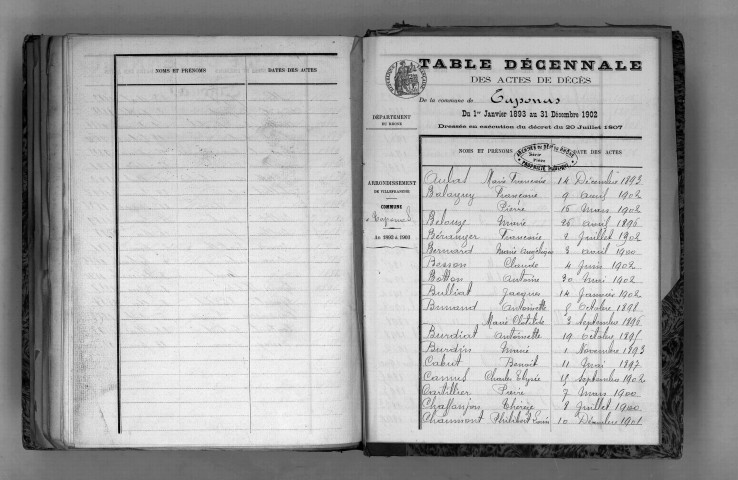 NOMS ET PRÉNOMS DATES DES ACTES
TABLE DÉCENNALE
DES ACTES DE DÉCÈS
De la commune de Taponas
Du 1er Janvier 1893 au 31 Décembre 1902
Dressée en exécution du décret du 20 Juillet 1807
DÉPARTEMENT
DU RHONE
ARRONDISSEMENT
DE VILLEFRANCHE
COMMUNE
Taponas
An 1893 à 1903
NOMS ET PRÉNOMS DATE DES ACTES
Aubat Marie Françoise 14 Décembre 1893
Balaguy Françoise 9 avril 1902
Pierre 15 mars 1902
Belouze Marie 25 avril 1896
Béranger Francisie 2 Juillet 1902
Bernard Marie Angélique 3 avril 1900
Besson Claude 4 Juin 1902
Botton Antoine 30 Mai 1902
Bulliat Jacques 14 Janvier 1902
Burnand Antoinette 5 Octobre 1898
Marie Clotilde 3 Septembre 1896
Burdiat Antoinette 19 Octobre 1895
Burdin Marie 1 Novembre 1893
Cabut Benoit 11 Mai 1897
Camus Charles Elysée 15 Septembre 1902
Cartillier Pierre 7 Mars 1900
Chaffanjon Thérèse 8 Juillet 1900
Chaumont Philibert Louis 10 Décembre 1901